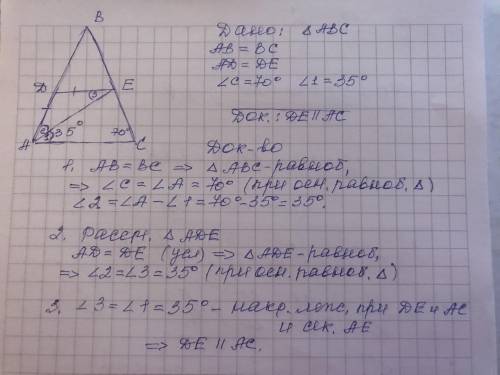 B
Дано: △ABC
AB = BC
AD = DE
∠C = 70° ∠1 = 35°
D
E
3
Док.: DE || AC
2
1
35°
70°
A
C
Док-во
1. AB = BC => △ABC - равноб,
=> ∠C = ∠A = 70° (при осн. равноб. △)
∠2 = ∠A - ∠1 = 70° - 35° = 35°.
2. Рассм. △ADE
AD = DE (усл) => △ADE - равноб,
=> ∠2 = ∠3 = 35° (при осн. равноб. △)
3. ∠3 = ∠1 = 35° - накр. леж, при DE и AC
и сек. AE
=> DE || AC.